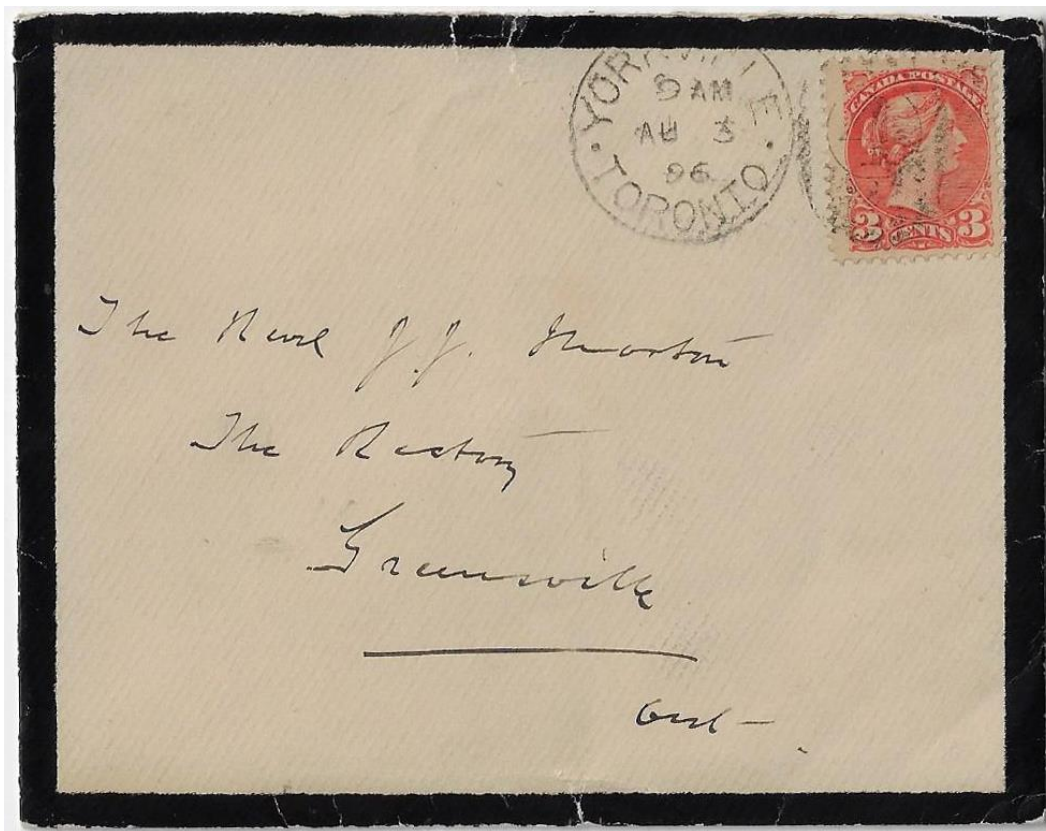 YORKVILLE
9 AM
AU 3
96
TORONTO
CANADA POSTAGE
3 CENTS 3
The Revd J. J. Morton
The Rectory
Greensville
Ont